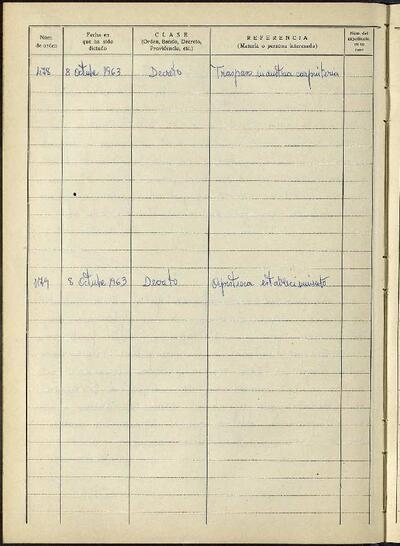 Núm. de orden
Fecha en que ha sido dictado
CLASE
(Orden, Bando, Decreto, Providencia, etc.)
REFERENCIA
(Materia o persona interesada)
Núm. del
478 8 Octubre 1963 Decreto Traspaso industria carpinteria
479 8 Octubre 1963 Decreto establecimiento